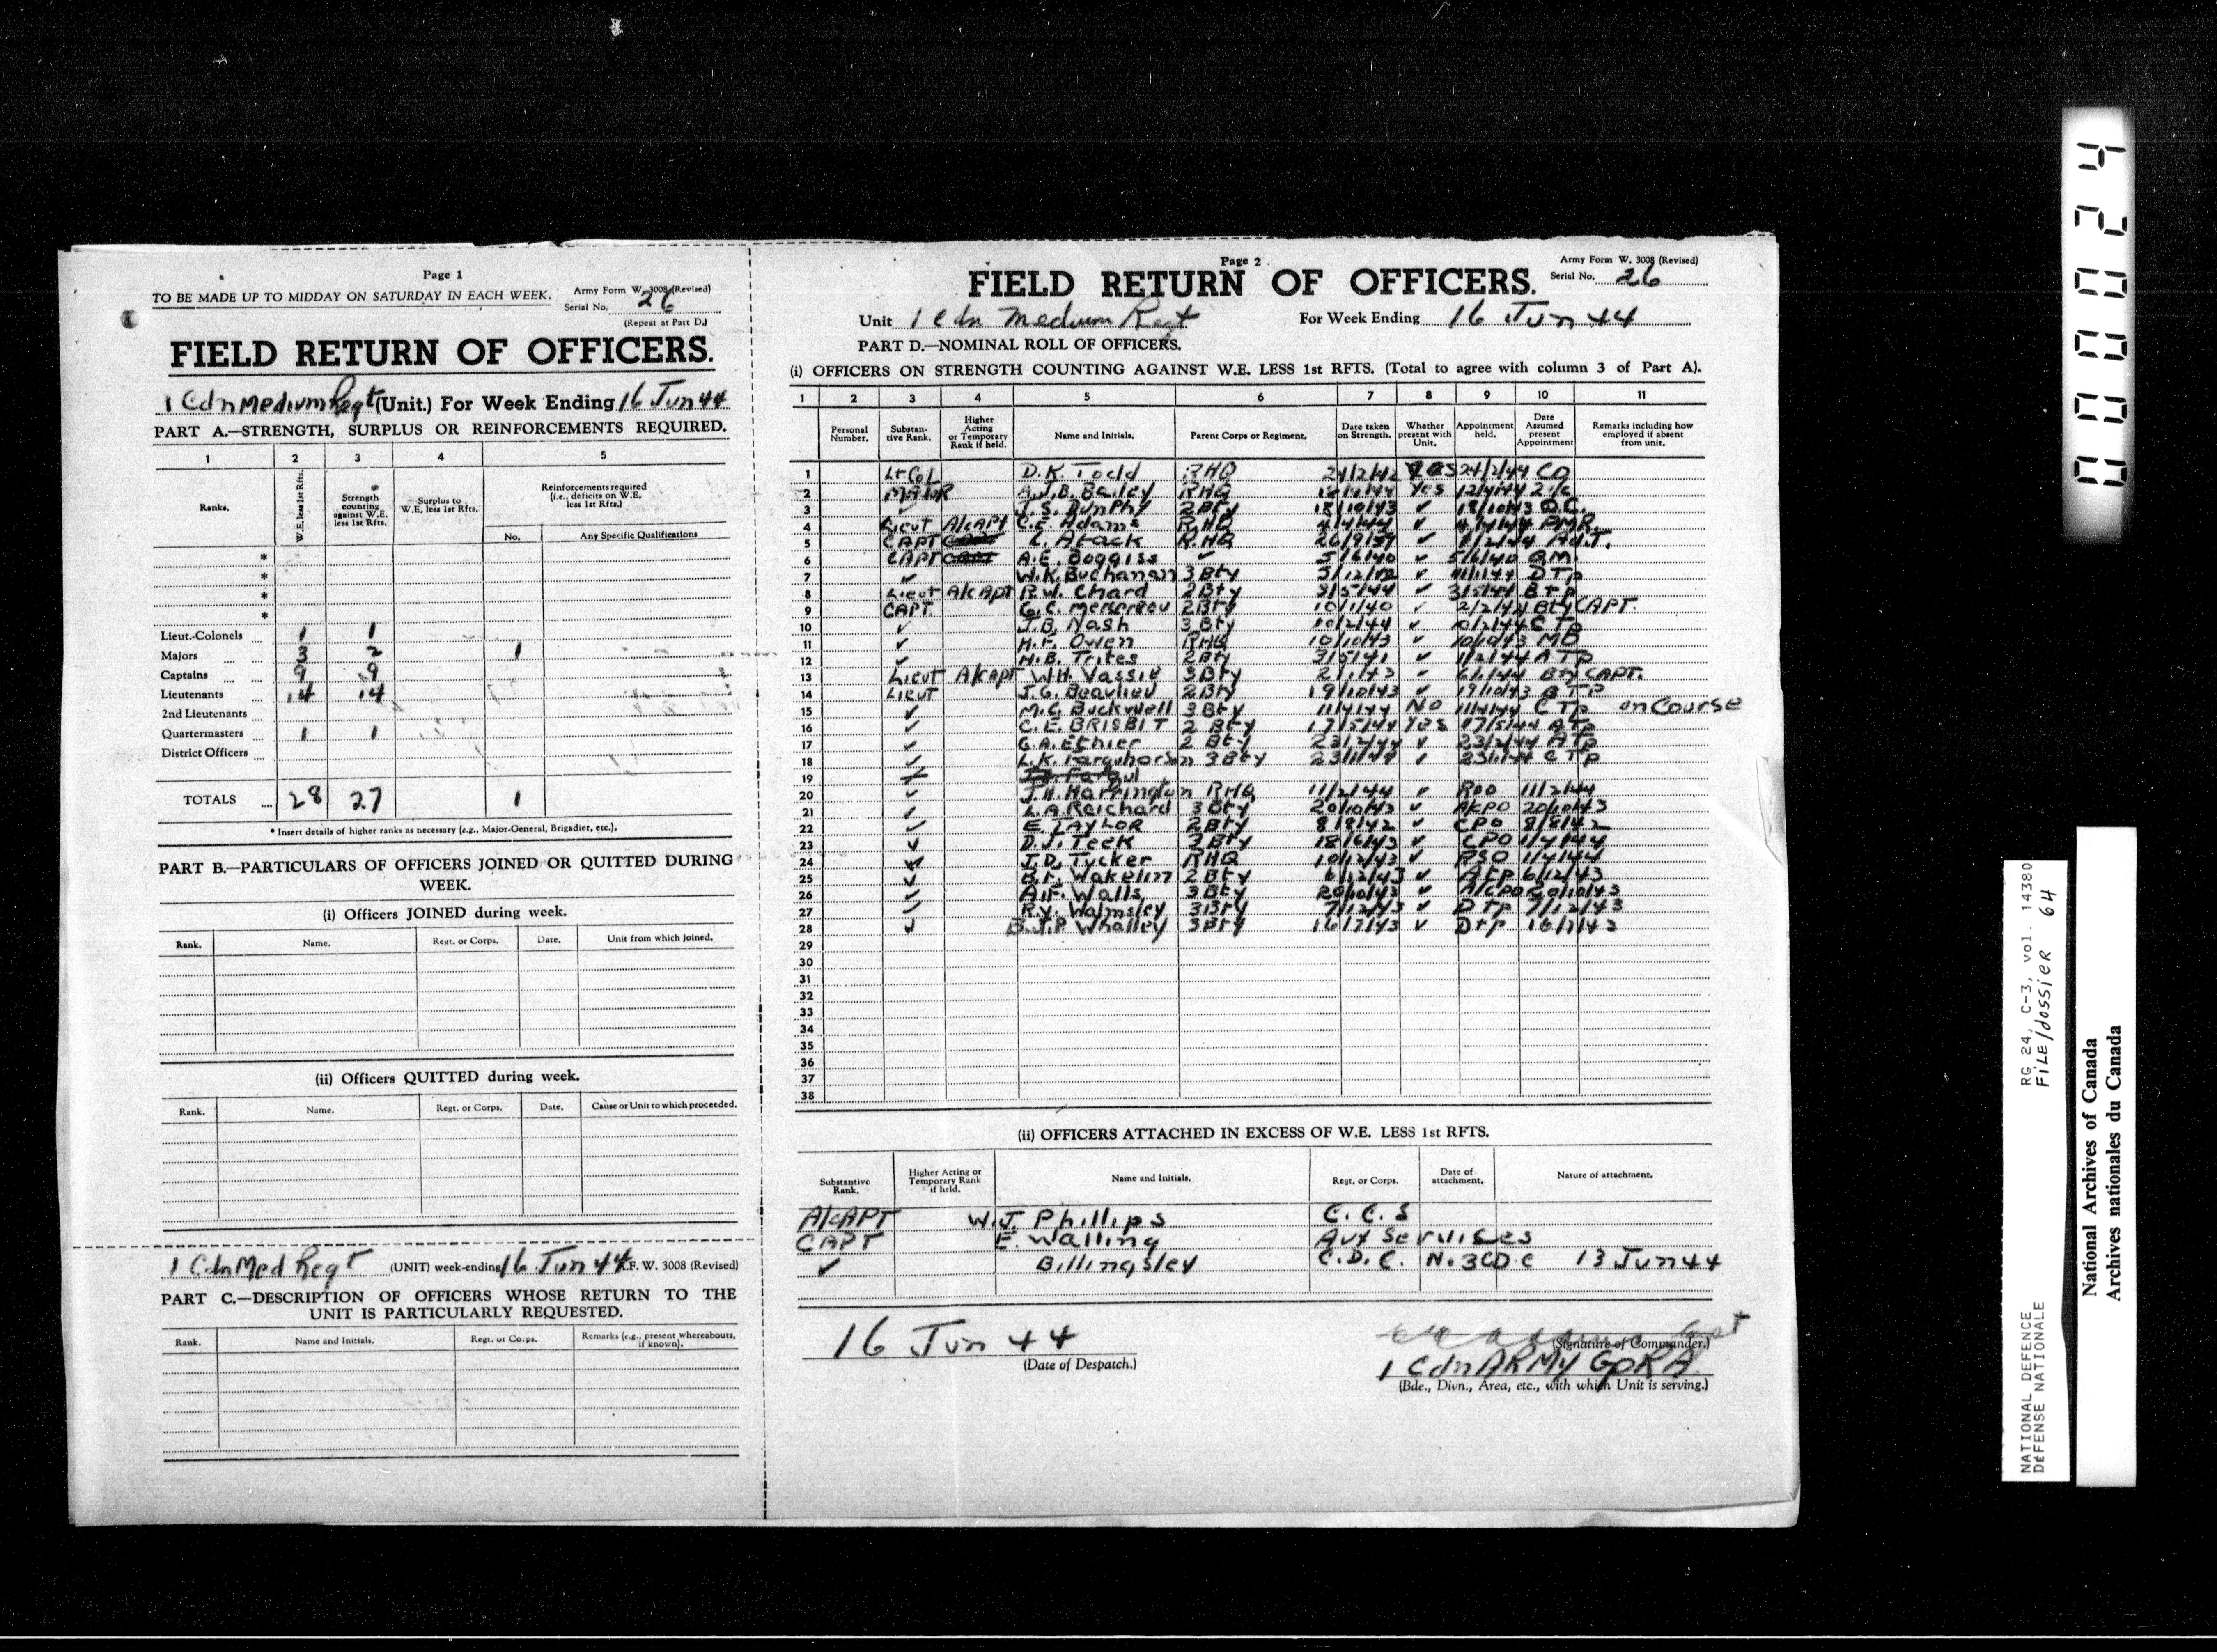 Page 1
TO BE MADE UP TO MIDDAY ON SATURDAY IN EACH WEEK.
Army Form W. 3008 (Revised)
Serial No. 26
(Repeat at Part D.)
FIELD RETURN OF OFFICERS.
1 Cdn Medium Regt (Unit.) For Week Ending 16 Jun 44
PART A.—STRENGTH, SURPLUS OR REINFORCEMENTS REQUIRED.
1 2 3 4 5
Ranks.
W.E. less 1st Rfts.
Strength counting against W.E. less 1st Rfts.
Surplus to W.E. less 1st Rfts.
Reinforcements required (i.e., deficits on W.E. less 1st Rfts.)
No. Any Specific Qualifications
*
*
*
*
Lieut.-Colonels 1 1
Majors 3 2 1
Captains 9 9
Lieutenants 14 14
2nd Lieutenants
Quartermasters 1 1
District Officers
TOTALS 28 27 1
* Insert details of higher ranks as necessary (e.g., Major-General, Brigadier, etc.).
PART B.—PARTICULARS OF OFFICERS JOINED OR QUITTED DURING WEEK.
(i) Officers JOINED during week.
Rank. Name. Regt. or Corps. Date. Unit from which joined.
(ii) Officers QUITTED during week.
Rank. Name. Regt. or Corps. Date. Cause or Unit to which proceeded.
1 Cdn Med Regt (UNIT) week-ending 16 Jun 44 F. W. 3008 (Revised)
PART C.—DESCRIPTION OF OFFICERS WHOSE RETURN TO THE UNIT IS PARTICULARLY REQUESTED.
Rank. Name and Initials. Regt. or Corps. Remarks (e.g., present whereabouts, if known).
Page 2
Army Form W. 3008 (Revised)
FIELD RETURN OF OFFICERS.
Serial No. 26
Unit 1 Cdn Medium Regt For Week Ending 16 Jun 44
PART D.—NOMINAL ROLL OF OFFICERS.
(i) OFFICERS ON STRENGTH COUNTING AGAINST W.E. LESS 1st RFTS. (Total to agree with column 3 of Part A).
1 2 3 4 5 6 7 8 9 10 11
Personal Number.
Substantive Rank.
Higher Acting or Temporary Rank if held.
Name and Initials.
Parent Corps or Regiment.
Date taken on Strength.
Whether present with Unit.
Appointment held.
Date Assumed present Appointment
Remarks including how employed if absent from unit.
1 Lt Col D.K. Todd RHQ 24/2/42 Yes 24/2/44 CO
2 MAJOR A.J.B. Bailey RHQ Yes 12/4/44 2 i/c
3 ✓ J.S. Dunphy 2 Bty 18/10/43 ✓ 18/10/43 O.C.
4 Lieut A/CAPT C.E. Adams RHQ 4/4/44 ✓ 4/4/44 PMR
5 CAPT L. Atack RHQ 26/9/39 ✓ Adj.
6 CAPT A.E. Boggiss ✓ 5/6/40 ✓ 5/6/40 QM
7 ✓ W.K. Buchanan 3 Bty ✓ D Tp
8 Lieut A/CAPT R.W. Chard 2 Bty 3/5/44 ✓ 3/5/44 B Tp
9 CAPT. G.C. Mersereau 2 Bty 10/1/40 ✓ 2/2/44 Bty CAPT.
10 ✓ J.B. Nash 3 Bty 10/2/44 ✓ 10/2/44 C Tp
11 ✓ H.F. Owen RHQ 10/10/43 ✓ 10/10/43 MO
12 ✓ H.B. Trites 2 Bty 3/5/41 ✓ 1/2/44 A Tp
13 Lieut A/CAPT W.H. Vassie 3 Bty 2/1/43 ✓ Bty CAPT.
14 Lieut J.G. Beaulieu 2 Bty 19/10/43 ✓ 19/10/43 B Tp
15 ✓ M.C. Buckwell 3 Bty 11/4/44 No 11/4/44 C Tp on Course
16 ✓ C.E. BRISBIT 2 Bty 17/5/44 Yes 17/5/44 A Tp
17 ✓ G.A. Ethier 2 Bty 23/2/44 ✓ 23/2/44 A Tp
18 ✓ L.K. Farquharson 3 Bty 23/1/44 ✓ 23/1/44 C Tp
19
20 ✓ J.H. Harrington RHQ 11/2/44 ✓ 11/2/44
21 ✓ L.A. Reichard 3 Bty 20/10/43 ✓ A/CPO 20/10/43
22 ✓ E. TAYLOR 2 Bty 8/8/42 ✓ CPO 8/8/42
23 ✓ D.J. Teek 3 Bty 18/6/43 ✓ CPO 1/4/44
24 ✓ J.D. Tucker RHQ 10/12/43 ✓ RSO 1/4/44
25 ✓ B.F. Wakelin 2 Bty 6/12/43 ✓ 6/12/43
26 ✓ A.F. Walls 3 Bty 20/10/43 ✓ A/CPO 20/10/43
27 ✓ R.Y. Walmsley 3 Bty 7/12/43 ✓ D Tp 7/12/43
28 ✓ B.J.P. Whalley 3 Bty 16/7/43 ✓ D Tp 16/7/43
29
30
31
32
33
34
35
36
37
38
(ii) OFFICERS ATTACHED IN EXCESS OF W.E. LESS 1st RFTS.
Substantive Rank. Higher Acting or Temporary Rank if held. Name and Initials. Regt. or Corps. Date of attachment. Nature of attachment.
A/CAPT W.J. Phillips C.C.S
CAPT E. Walling Aux Services
✓ Billingsley C.D.C. No. 3 CDC 13 Jun 44
16 Jun 44
(Date of Despatch.)
(Signature of Commander.)
1 Cdn ARMY GpRA
(Bde., Divn., Area, etc., with which Unit is serving.)
000024
NATIONAL DEFENCE RG 24, C-3, vol. 14380
DÉFENSE NATIONALE FILE/dossier 64
National Archives of Canada
Archives nationales du Canada